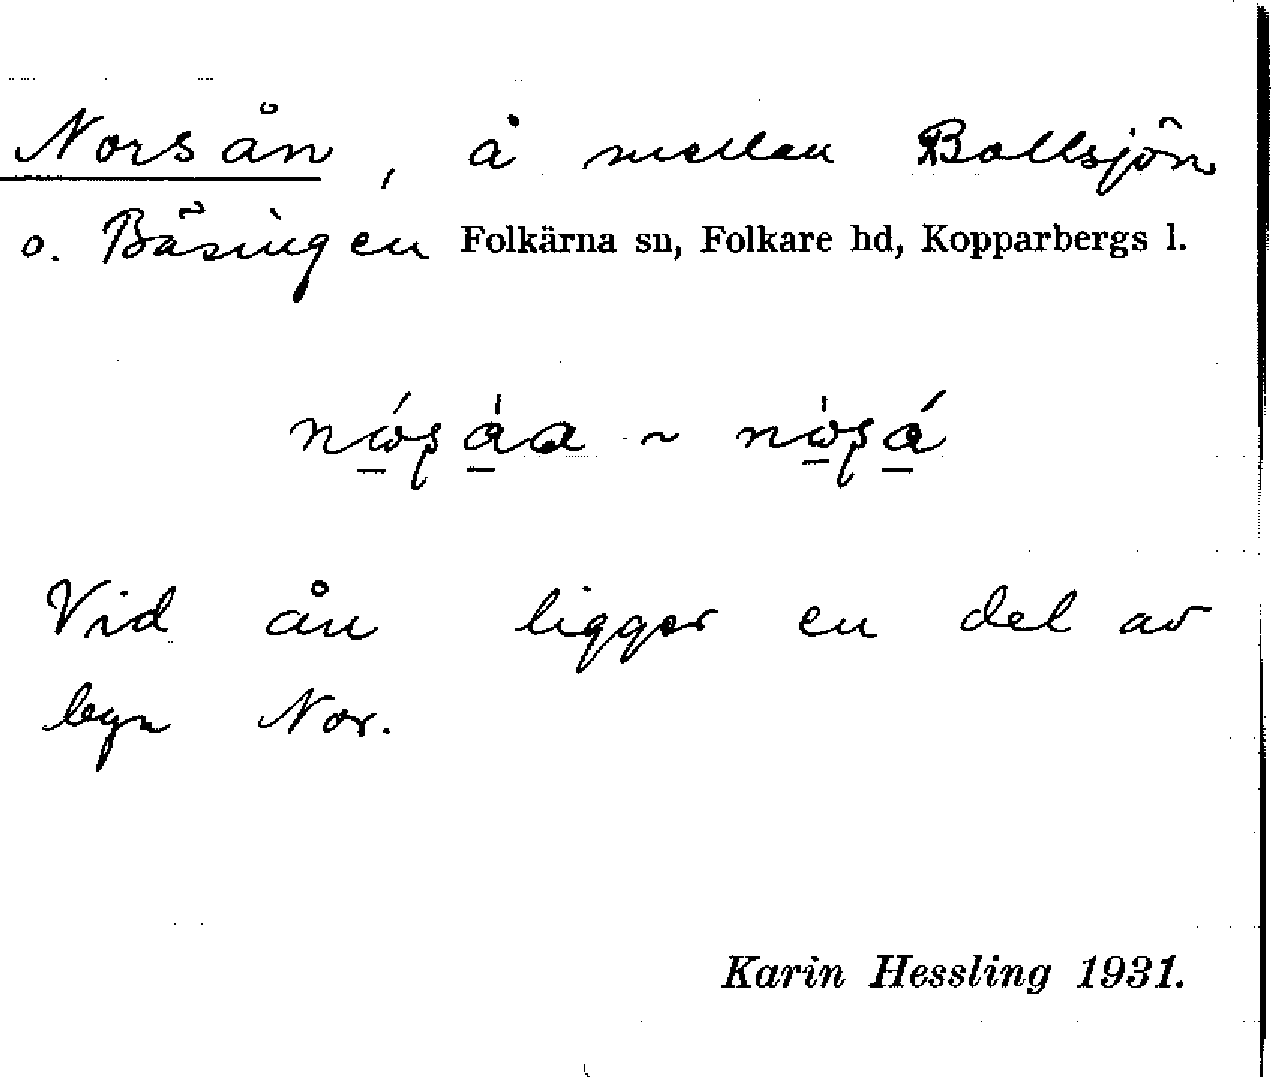 Norsån, å mellan Bollsjön
o. Bäsingen Folkärna sn, Folkare hd, Kopparbergs l.
Vid ån ligger en del av
byn Nor.
Karin Hessling 1931.